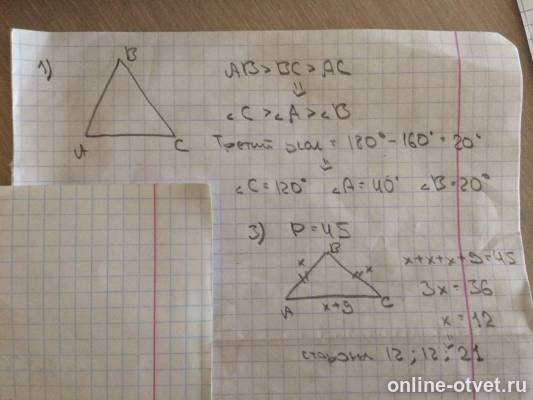 1)
B
A
C
AB > BC > AC
⇓
∠C > ∠A > ∠B
Третий угол = 180° - 160° = 20°
⇓
∠C = 120° ∠A = 40° ∠B = 20°
3) P = 45
B
x
x
A
C
x+9
x+x+x+9=45
3x = 36
x = 12
⇓
стороны 12; 12; 21
online-otvet.ru